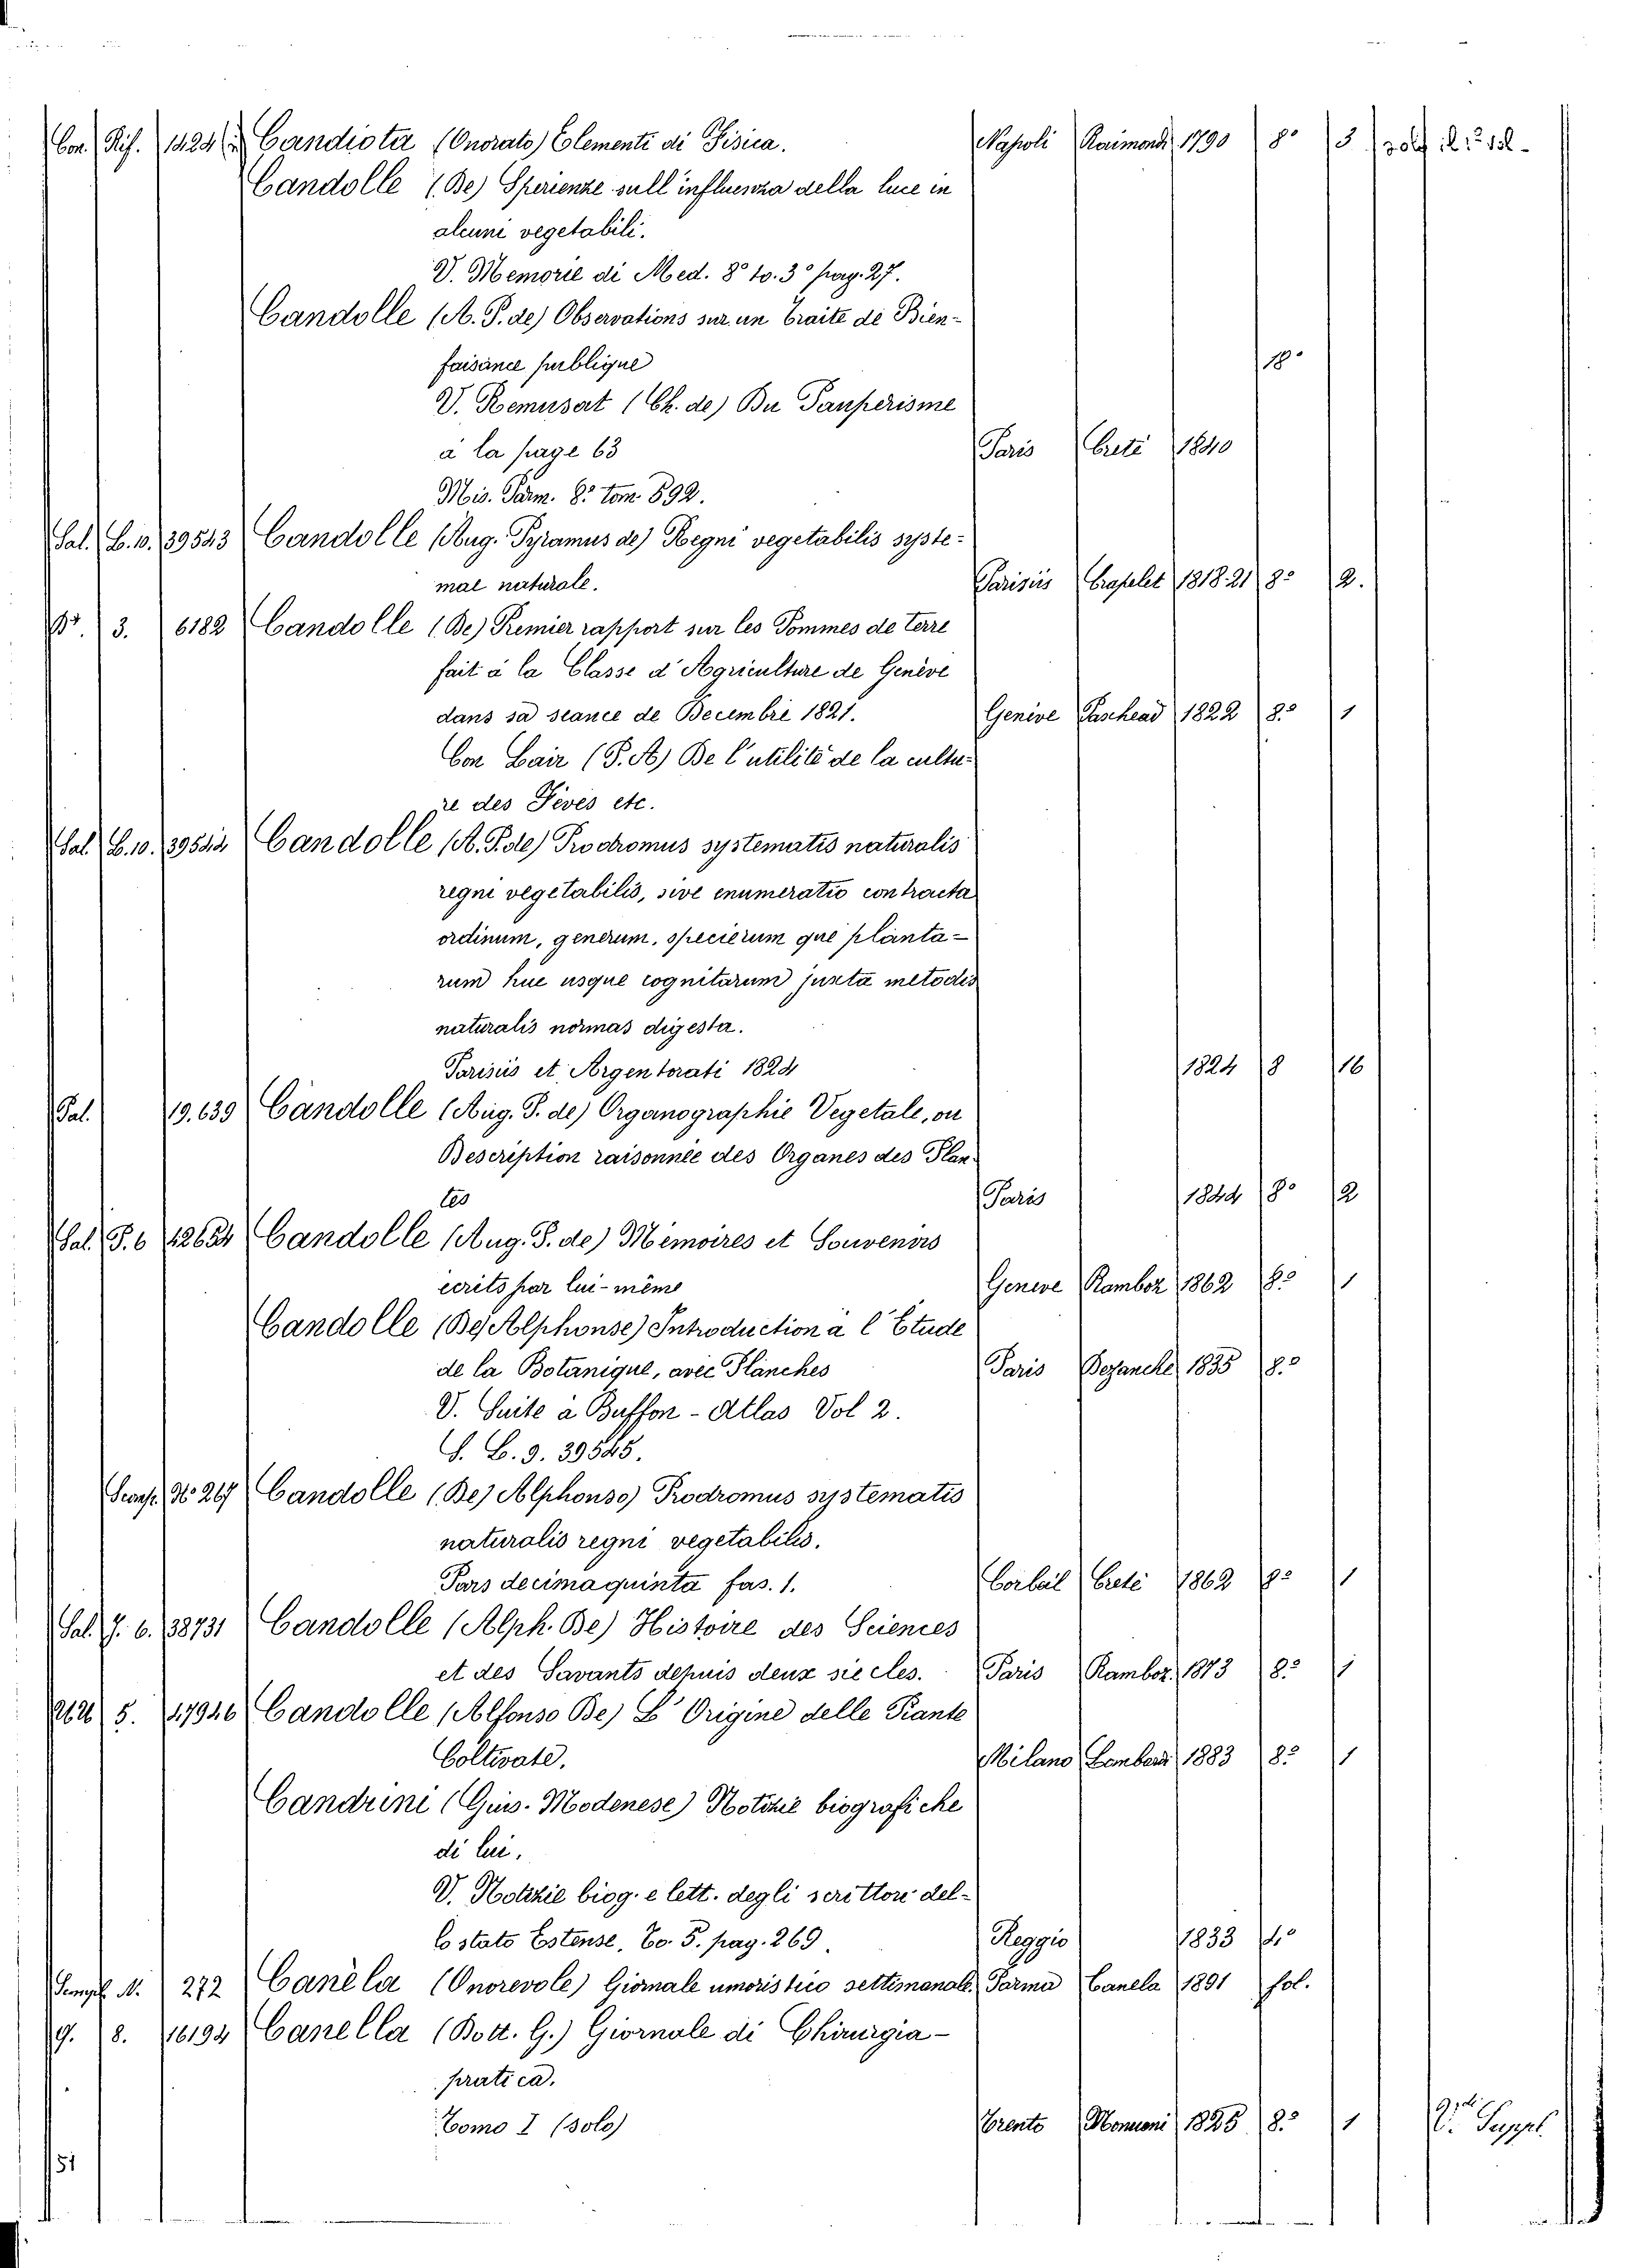 Con. Rif. 1424 Candiota (Onorato) Elementi di Fisica. Napoli Raimondi 1790 8° 3
Candolle (De) Sperienze sull'influenza della luce in
alcuni vegetabili.
V. Memorie di Med. 8° to. 3° pag. 27.
Candolle (A. P. de) Observations sur un Traite de Bien-
faisance publique 18°
V. Remusat (Ch. de) Du Pauperisme
à la page 63 Paris Creté 1840
Mis. Parm. 8° tom 592.
Sal. L. 10. 39543 Candolle (Aug. Pyramus de) Regni vegetabilis syste-
mal naturale. Parisiis Crapelet 1818.21 8° 2.
3. 6182 Candolle (De) Premier rapport sur les Pommes de terre
fait à la Classe d'Agriculture de Genève
dans sa séance de Decembre 1821. Genive Paschead 1822 8° 1
Con Lair (P. A) De l'utilité de la cultu-
re des Féves etc.
Sal. L. 10. 39544 Candolle (A. P. de) Prodromus systematis naturalis
regni vegetabilis, sive enumeratio contracta
ordinum, generum, specierum que planta-
rum huc usque cognitarum juxta metodis
naturalis normas digesta.
Parisiis et Argentorati 1824 1824 8 16
Pal. 19.639 Candolle (Aug. P. de) Organographie Vegetale, ou
Description raisonnée des Organes des Plan-
tes Paris 1844 8° 2
Sal. P. 6 12654 Candolle (Aug. P. de) Mémoires et Souvenirs
ecrits par lui-même Geneve Ramboz 1862 8° 1
Candolle (De Alphonse) Introduction à l'Etude
de la Botanique, avec Planches Paris Bezanche 1835 8°
V. Suite à Buffon - Atlas Vol 2.
S. L. 9. 39545.
Scansf. N° 267 Candolle (De) Alphonso) Prodromus systematis
naturalis regni vegetabilis.
Pars decimaquinta fas. 1. Corbeil Creté 1862 8° 1
Sal. J. 6. 38731 Candolle (Alph. De) Histoire des Sciences
et des Savants depuis deux siecles. Paris Ramboz. 1873 8° 1
5. 47946 Candolle (Alfonso De) L'Origine delle Piante
Coltivate. Milano Lombard 1883 8° 1
Candrini (Gius. Modenese) Notizie biografiche
di lui.
V. Notizie biog. e lett. degli scrittori del-
lo stato Estense, To. 5. pag. 269. Reggio 1833 4°
N. 272 Canèla (Onorevole) Giornale umoristico settimanale. Parma Canela 1891 fol.
G. 8. 16194 Canella (Dott. G.) Giornale di Chirurgia-
pratica.
Tomo I (solo) Trento Monauni 1825 8° 1 V. Suppl.
51